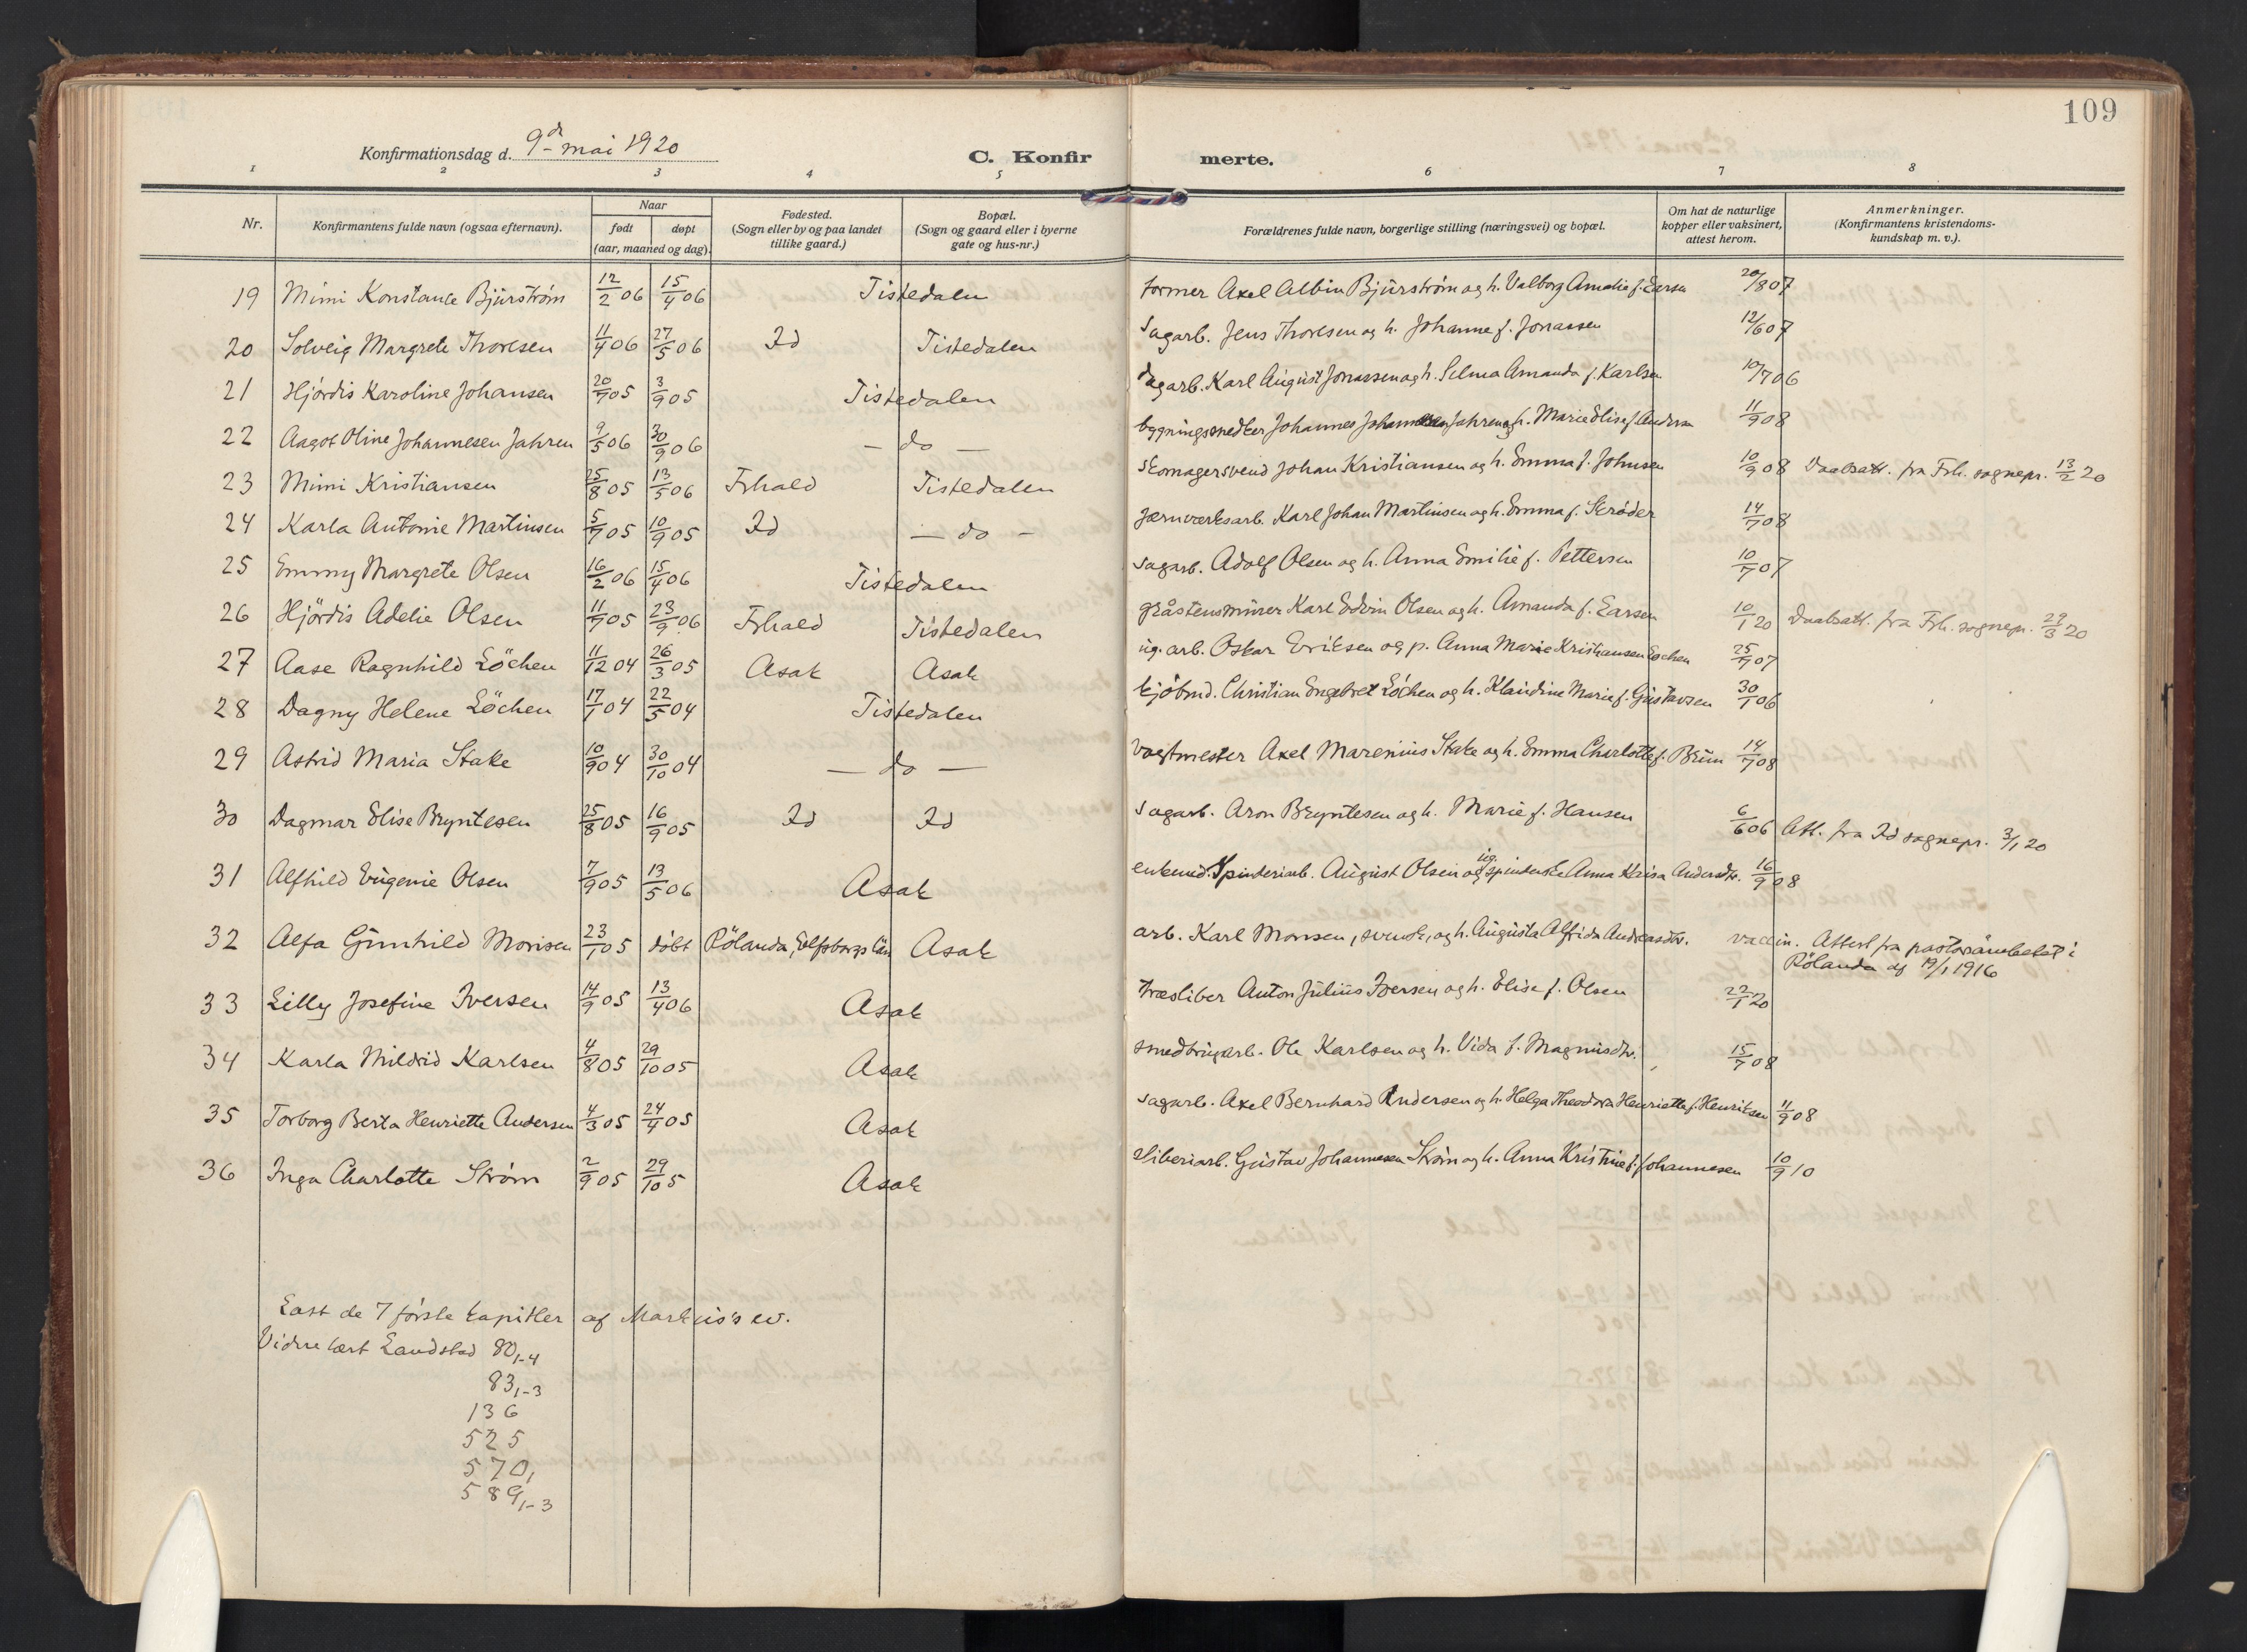 109
Konfirmationsdag d. 9de mai 1920
C. Konfir merte.
1 2 3 4 5 6 7 8
Nr. Konfirmantens fulde navn (ogsaa efternavn). Naar født døpt (aar, maaned og dag). Fødested. (Sogn eller by og paa landet tillike gaard.) Bopæl. (Sogn og gaard eller i byerne gate og hus-nr.) Forældrenes fulde navn, borgerlige stilling (næringsvei) og bopæl. Om hat de naturlige kopper eller vaksinert, attest herom. Anmerkninger. (Konfirmantens kristendoms-kundskap m. v.).
19 Mimi Konstance Bjürström 12/2 06 15/4 06 Tistedalen former Axel Albin Bjürström og h. Valborg Amalie f. Larsen 20/8 07
20 Solveig Margrete Thoresen 11/4 06 27/5 06 Id Tistedalen sagarb. Jens Thoresen og h. Johanne f. Jonassen 12/6 07
21 Hjördis Karoline Johansen 20/7 05 3/9 05 Tistedalen dagarb. Karl August Jonassen og h. Selma Amanda f. Karlsen 10/7 06
22 Aagot Oline Johannesen Jahren 9/5 06 30/9 06 – do – bygningssnedker Johannes Johannesen Jahren og h. Marie Elise f. Andersen 11/9 08
23 Mimi Kristiansen 25/8 05 13/5 06 Frhald Tistedalen skomagersvend Johan Kristiansen og h. Emma f. Johnsen 10/9 08 Daabsatt. fra Frh. sognepr. 13/2 20
24 Karla Antonie Martinsen 5/7 05 10/9 05 Id – do – Jærnværksarb. Karl Johan Martinsen og h. Emma f. Skröder 14/7 08
25 Emmy Margrete Olsen 16/2 06 15/4 06 Tistedalen sagarb. Adolf Olsen og h. Anna Emilie f. Pettersen 10/7 07
26 Hjördis Adelie Olsen 11/7 05 23/9 06 Frhald Tistedalen gråstensmürer Karl Edvin Olsen og h. Amanda f. Larsen 10/1 20 Daabsatt. fra Frh. sognepr. 29/3 20
27 Aase Ragnhild Löchen 11/12 04 26/3 05 Asak Asak ug. arb. Oskar Eriksen og p. Anna Marie Kristiansen Löchen 25/9 07
28 Dagny Helene Löchen 17/1 04 22/5 04 Tistedalen kjöbmd. Christian Engebret Löchen og h. Klaudine Marie f. Gustavsen 30/1 06
29 Astrid Maria Stake 10/9 04 30/10 04 – do – vagtmester Axel Marenius Stake og h. Emma Charlotte f. Brün 14/7 08
30 Dagmar Elise Bryntesen 25/8 05 16/9 05 Id Id sagarb. Aron Bryntesen og h. Marie f. Hansen 6/6 06 Att. fra Id sognepr. 3/1 20
31 Alfhild Eugenie Olsen 7/9 05 13/5 06 Asak enkemd. Spinderiarb. August Olsen og ug. spinderske Anna Kaisa Andersdtr. 16/9 08
32 Alfa Gunhild Monsen 23/1 05 döbt Rölanda, Elfsborgs län Asak arb. Karl Monsen, svensk, og h. Augusta Alfrida Andreasdtr. vaccin. Attest fra pastorämbetet i
Rölanda af 19/1 1916
33 Lilly Josefine Iversen 14/9 05 13/4 06 Asak træsliber Anton Julius Iversen og h. Elise f. Olsen 22/1 20
34 Karla Mildrid Karlsen 4/8 05 29/10 05 Asak smedbrugarb. Ole Karlsen og h. Vida f. Magnusdtr. 15/7 08
35 Torborg Berta Henriette Andersen 4/3 05 24/4 05 Asak sagarb. Axel Bernhard Andersen og h. Helga Theodora Henriette f. Henriksen 11/9 08
36 Inga Charlotte Ström 2/9 05 29/10 5 Asak Sliberiarb. Gustav Johannesen Ström og h. Anna Kristine f. Johannesen 10/9 10
Læst de 7 förste kapitler af Markus's ev.
Videre lært Landstad 80, 1-4
83, 1-3
136
525
570,
589, 1-3